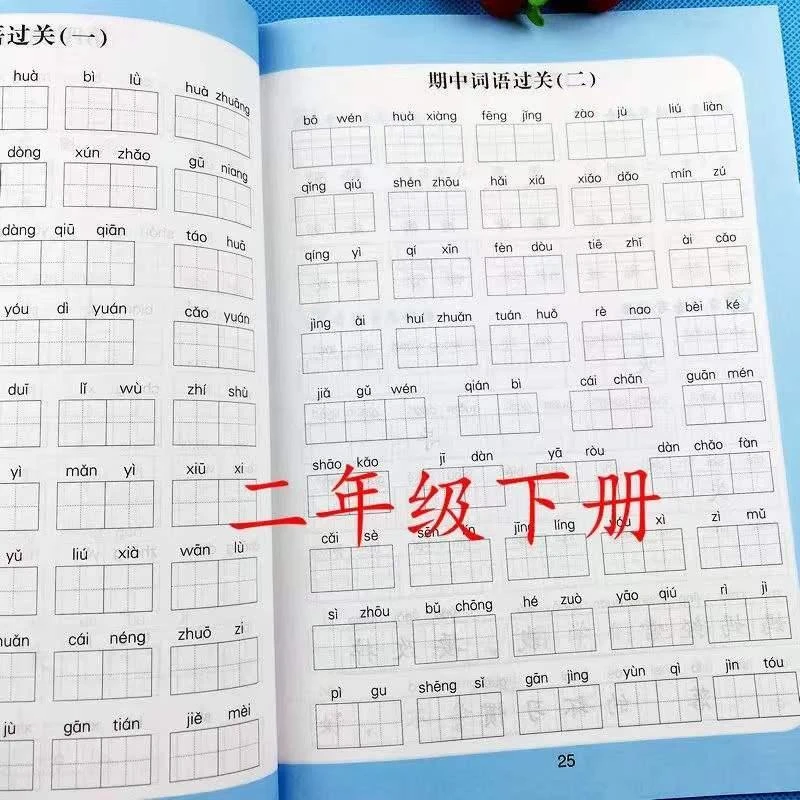 语过关(一)
huà bì lǜ huà zhuāng
dòng xún zhǎo gū niang
dàng qiū qiān táo huā
yóu dì yuán cǎo yuán
duī lǐ wù zhí shù
yì mǎn yì xiū xi
yǔ liú xià wān lù
cái néng zhuō zi
jù gān tián jiě mèi
期中词语过关(二)
bō wén huà xiàng fēng jǐng zào jù liú liàn
qǐng qiú shén zhōu hǎi xiá xiǎo dǎo mín zú
qíng yì qí xīn fèn dòu tiē zhǐ ài cǎo
jìng ài huí zhuǎn tuán huǒ rè nao bèi ké
jiǎ gǔ wén qián bì cái chǎn guān mén
shāo kǎo jī dàn yā ròu dàn chǎo fàn
cǎi sè jīng líng yóu xì zì mǔ
sì zhōu bǔ chōng hé zuò yāo qiú rì jì
pì gu shēng sǐ gān jìng yùn qì jìn tóu
二年级下册
25